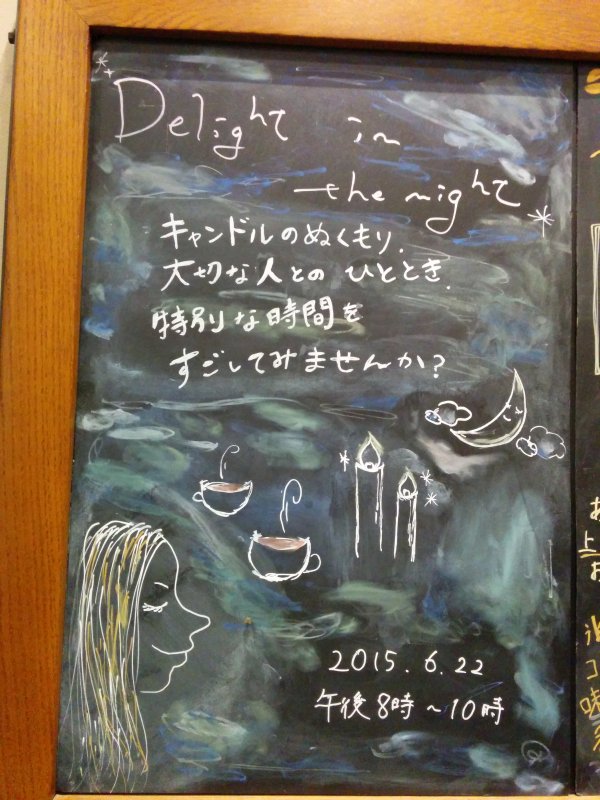 Delight in
the night
キャンドルのぬくもり.
大切な人とのひととき.
特別な時間を
すごしてみませんか?
2015.6.22
午後8時~10時